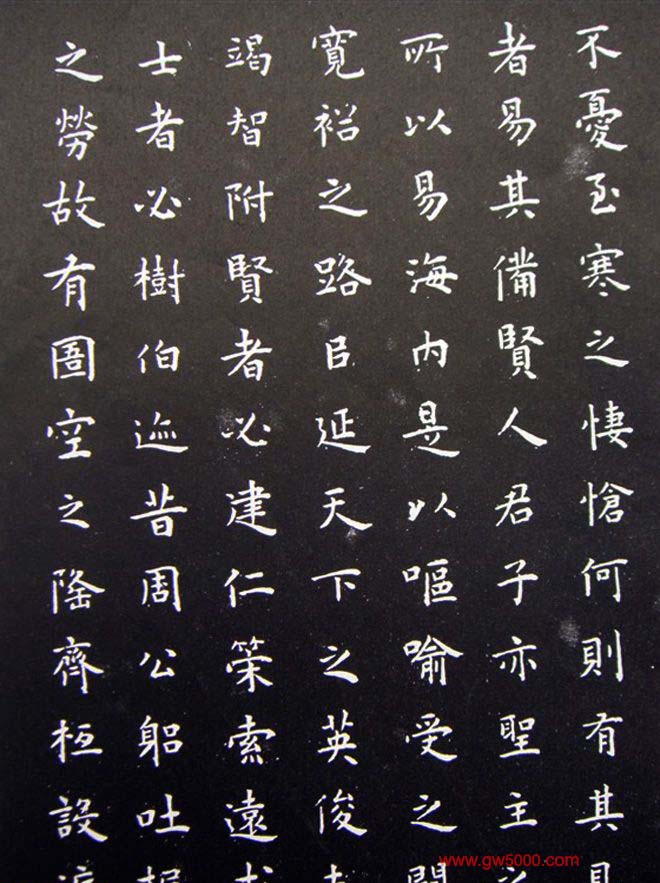 不憂至寒之悽愴何則有其具
者易其備賢人君子亦聖主之
所以易海内是以嘔喻受之開
寬裕之路以延天下之英俊
竭智附賢者必建仁策索遠
士者必樹伯迹昔周公躬吐握
之勞故有圄空之隆齊桓設
www.gw5000.com